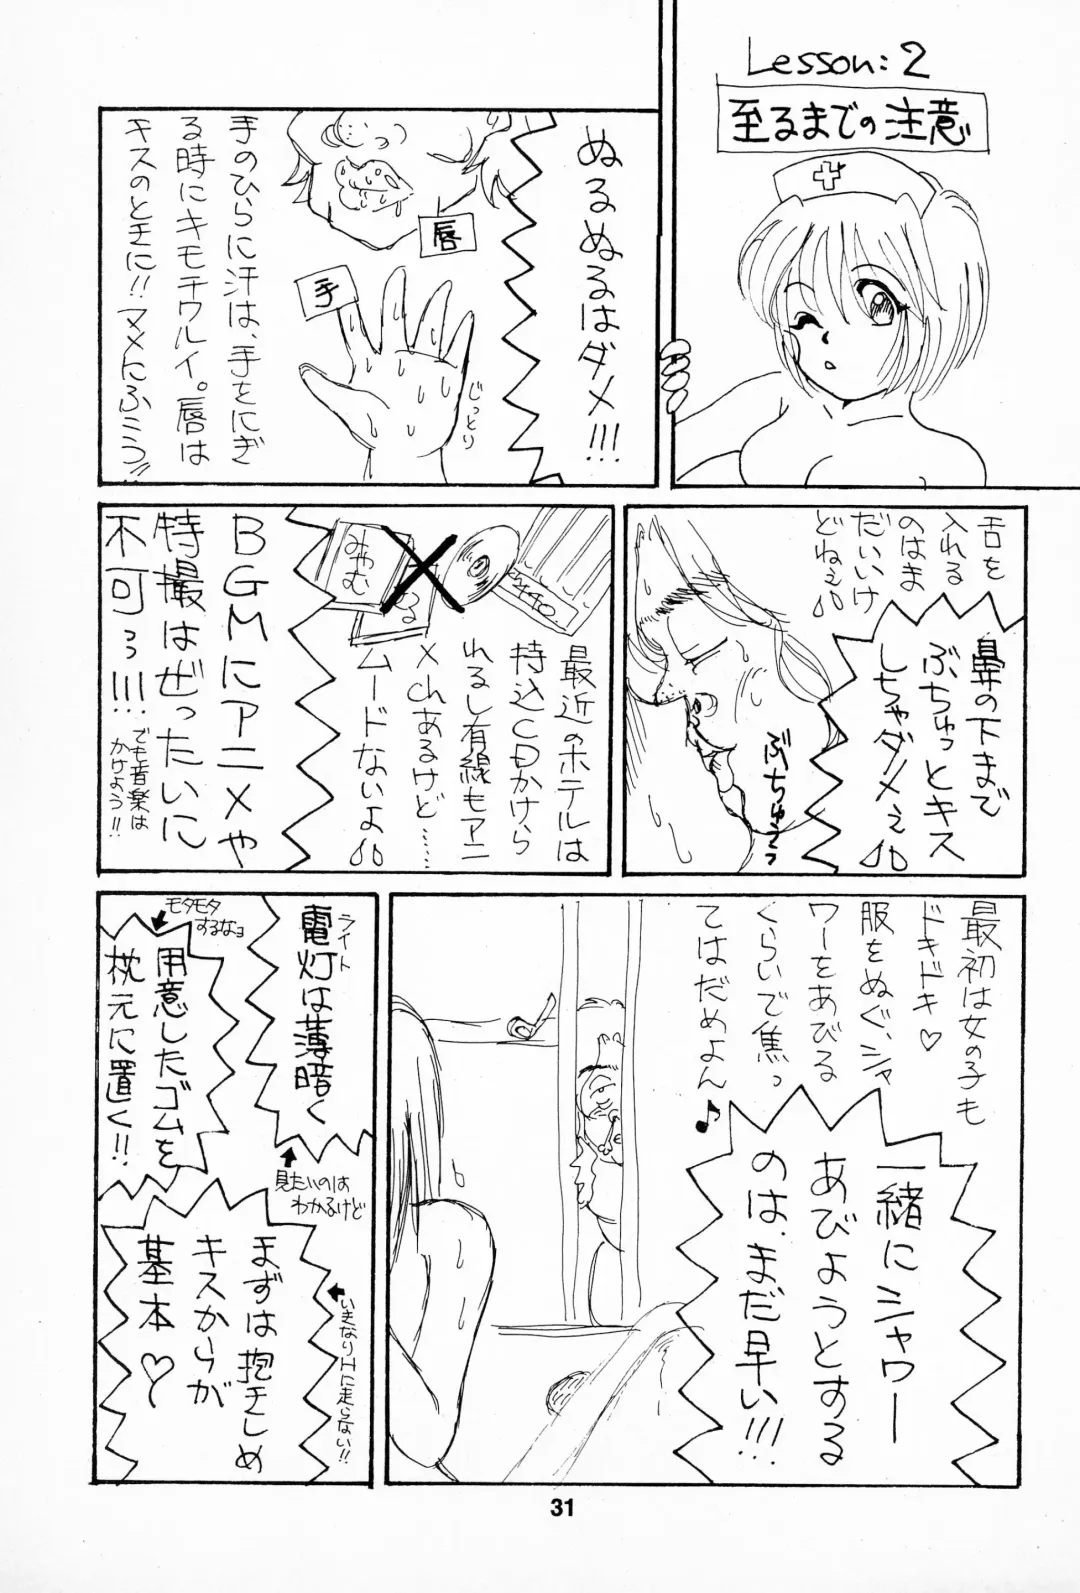 Lesson:2
至るまでの注意
ぬるぬるはダメ!!!
唇
手
じっとり
手のひらに汗は、手をにぎ
る時にキモチワルイ。唇は
キスのときに!!マメにふこう!!
舌を
入れる
のはま
だいいけ
どねぇ
鼻の下まで
ぶちゅっとキス
しちゃダメぇ
ぶちゅうっ
最近のホテルは
持込CDかけら
れるし有線もアニ
メchあるけど……
ムードないよ
みやむ
440
BGMにアニメや
特撮はぜったいに
不可っ!!!
でも音楽は
かけよう!!
最初は女の子も
ドキドキ♡
服をぬぐ、シャ
ワーをあびる
くらいで焦っ
てはだめよん♪
一緒にシャワー
あびようとする
のは、まだ早い!!!
ライト
電灯は薄暗く
見たいのは
わかるけど
モタモタ
するなョ
用意したゴムを
枕元に置く!!
まずは抱きしめ
キスからが
基本♡
いきなりHに走らない!!
31